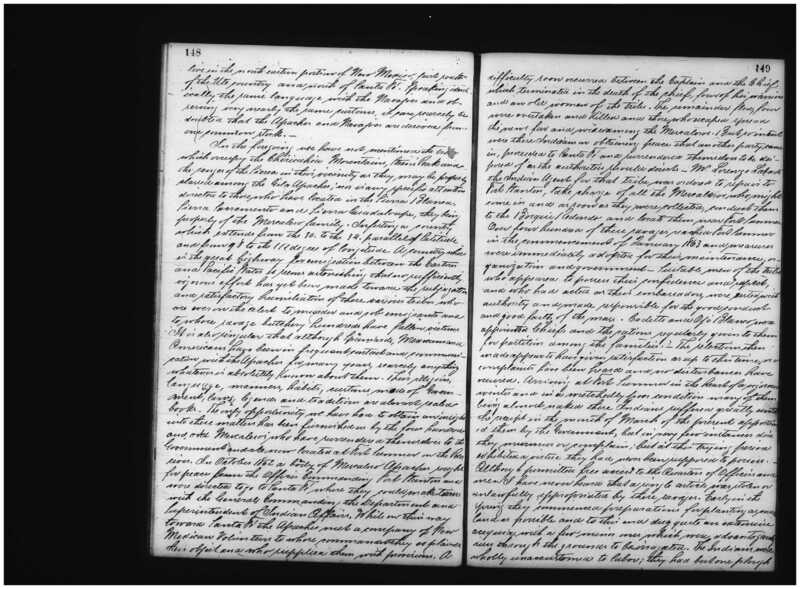 148
live in the north eastern portion of New Mexico, just south
of the Ute country and north of Santa Fé. Speaking
the same language with the Navajos and
very nearly the same customs, it can scarcely be
doubted that the Apaches and Navajos are derived from
one common stock. —
In the foregoing we have not mentioned the
which occupy the Chiricahua Mountains, their
the ranges of the Sierra in their vicinity as they may be properly
classed among the Gila Apaches, nor is any specific attention
directed to those who have located in the Sierra Blanca,
Sierra Sacramento and Sierra Guadaloupe, they being
properly of the Mescalero family. Infesting a country
which extends from the 30. to the 34. parallel of Latitude
and from to the 111 degree of longitude. A country where
is the great highway for emigration between the Eastern
and Pacific States it seems astonishing that no sufficiently
vigorous effort has yet been made toward the subjugation
and satisfactory humiliation of these savage tribes who
are ever on the alert to murder and rob emigrants and
to whose savage butchery hundreds have fallen victims
It is also singular that although Spaniards, Mexicans and
Americans have been in frequent contact and communi-
cation with the Apaches for many years, scarcely anything
whatever is absolutely known about them. Their religion,
language, manners, habits, customs, mode of Govern-
ment, laws, legends and tradition are almost sealed
books. The only opportunity we have had to obtain an insight
into these matters has been furnished us by the four hundred
and odd Mescaleros who have surrendered themselves to the
Government and are now located at Fort Sumner on the Pecos
River. In October 1862 a body of Mescalero Apaches sought
for peace from the Officer Commanding Fort Stanton and
were directed to go to Santa Fé where they could make terms
with the General Commanding the department and
Superintendent of Indian Affairs. While on their way
toward Santa Fé the Apaches met a company of New
Mexican Volunteers to whose commander they explained
their object and who supplied them with provisions. A
149
difficulty soon occurred between the Captain and the Chief,
which terminated in the death of the chief, four of his warriors
and an old woman of the tribe. The remainder fled, four
were overtaken and killed and those who escaped spread
the news far and wide among the Mescaleros. But so intent
were these Indians on obtaining peace that another party came
in, proceeded to Santa Fé and surrendered themselves to be dis-
posed of as the authorities should decide. — Mr Lorenzo Labadi
the Indian Agent for that tribe, was ordered to repair to
Fort Stanton, take charge of all the Mescaleros who might
come in and as soon as they were collected, conduct them
to the Bosque Redondo and locate them near Fort Sumner.
Over four hundred of these savages reached Fort Sumner
in the commencement of January 1863 and measures
were immediately adopted for their maintenance, or-
ganization and government. — Suitable men of the tribe
who appeared to possess their confidence and respect,
and who had acted as their embassadors were invested with
authority and made responsible for the good conduct
and good faith of the mass. Cadette and Ojo Blanco were
appointed Chiefs and the rations regularly given to them
for partition among the families. — The selections then
made appear to have given satisfaction as up to that time no
complaints has been heard and no disturbances have
occurred. Arriving at Fort Sumner in the heart of a rigorous
winter and in a wretchedly poor condition many of them
being almost naked these Indians suffered greatly until
the receipt in the month of March of the presents apportion-
ed them by the Government, but in very few instances did
they murmur or complain, but in this trying period
exhibited a virtue they had never been supposed to possess. —
Although permitted free access to the Quarters of Officers and
men I have never heard that a single article was stolen or
unlawfully appropriated by these savages. Early in the
Spring they commenced preparations for planting as much
land as possible and to this end dug quite an extensive
acequia with a few minor ones which were advantageously
run through the grounds to be irrigated. The Indians were
wholly unaccustomed to labor; they had but one plough